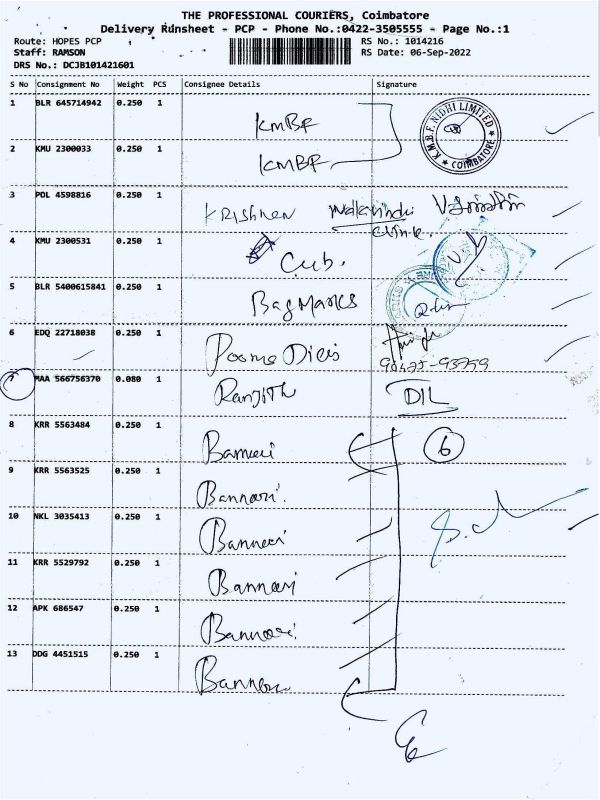 THE PROFESSIONAL COURIERS, Coimbatore
Delivery Runsheet - PCP - Phone No.:0422-3505555 - Page No.:1
Route: HOPES PCP RS No.: 1014216
Staff: RAMSON RS Date: 06-Sep-2022
DRS No.: DCJB101421601
S No Consignment No Weight PCS Consignee Details Signature
1 BLR 645714942 0.250 1 KMBF
K.M.B.F. NIDHI LIMITED
COIMBATORE
2 KMU 2300033 0.250 1 KMBF
3 POL 4598816 0.250 1 KRISHNEN
4 KMU 2300531 0.250 1 Cub.
5 BLR 5400615841 0.250 1 BagMarks
6 EDQ 22718038 0.250 1
7 MAA 566756370 0.080 1 RANJITH DIL
8 KRR 5563484 0.250 1 Bannari 6
9 KRR 5563525 0.250 1 Bannari.
10 NKL 3035413 0.250 1 Bannari
11 KRR 5529792 0.250 1 Bannari
12 APK 686547 0.250 1 Bannari.
13 DDG 4451515 0.250 1 Bannari